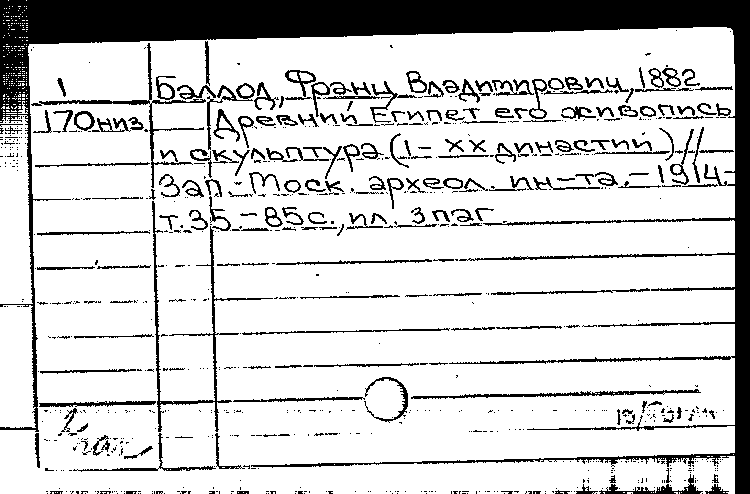 1 Баллод, Франц Владимирович, 1882
170низ. Древний Египет его живопись
и скульптура (I-XX династии) //
Зап. Моск. археол. ин-та.-1914.-
т.35.-85с., ил. 3паг.